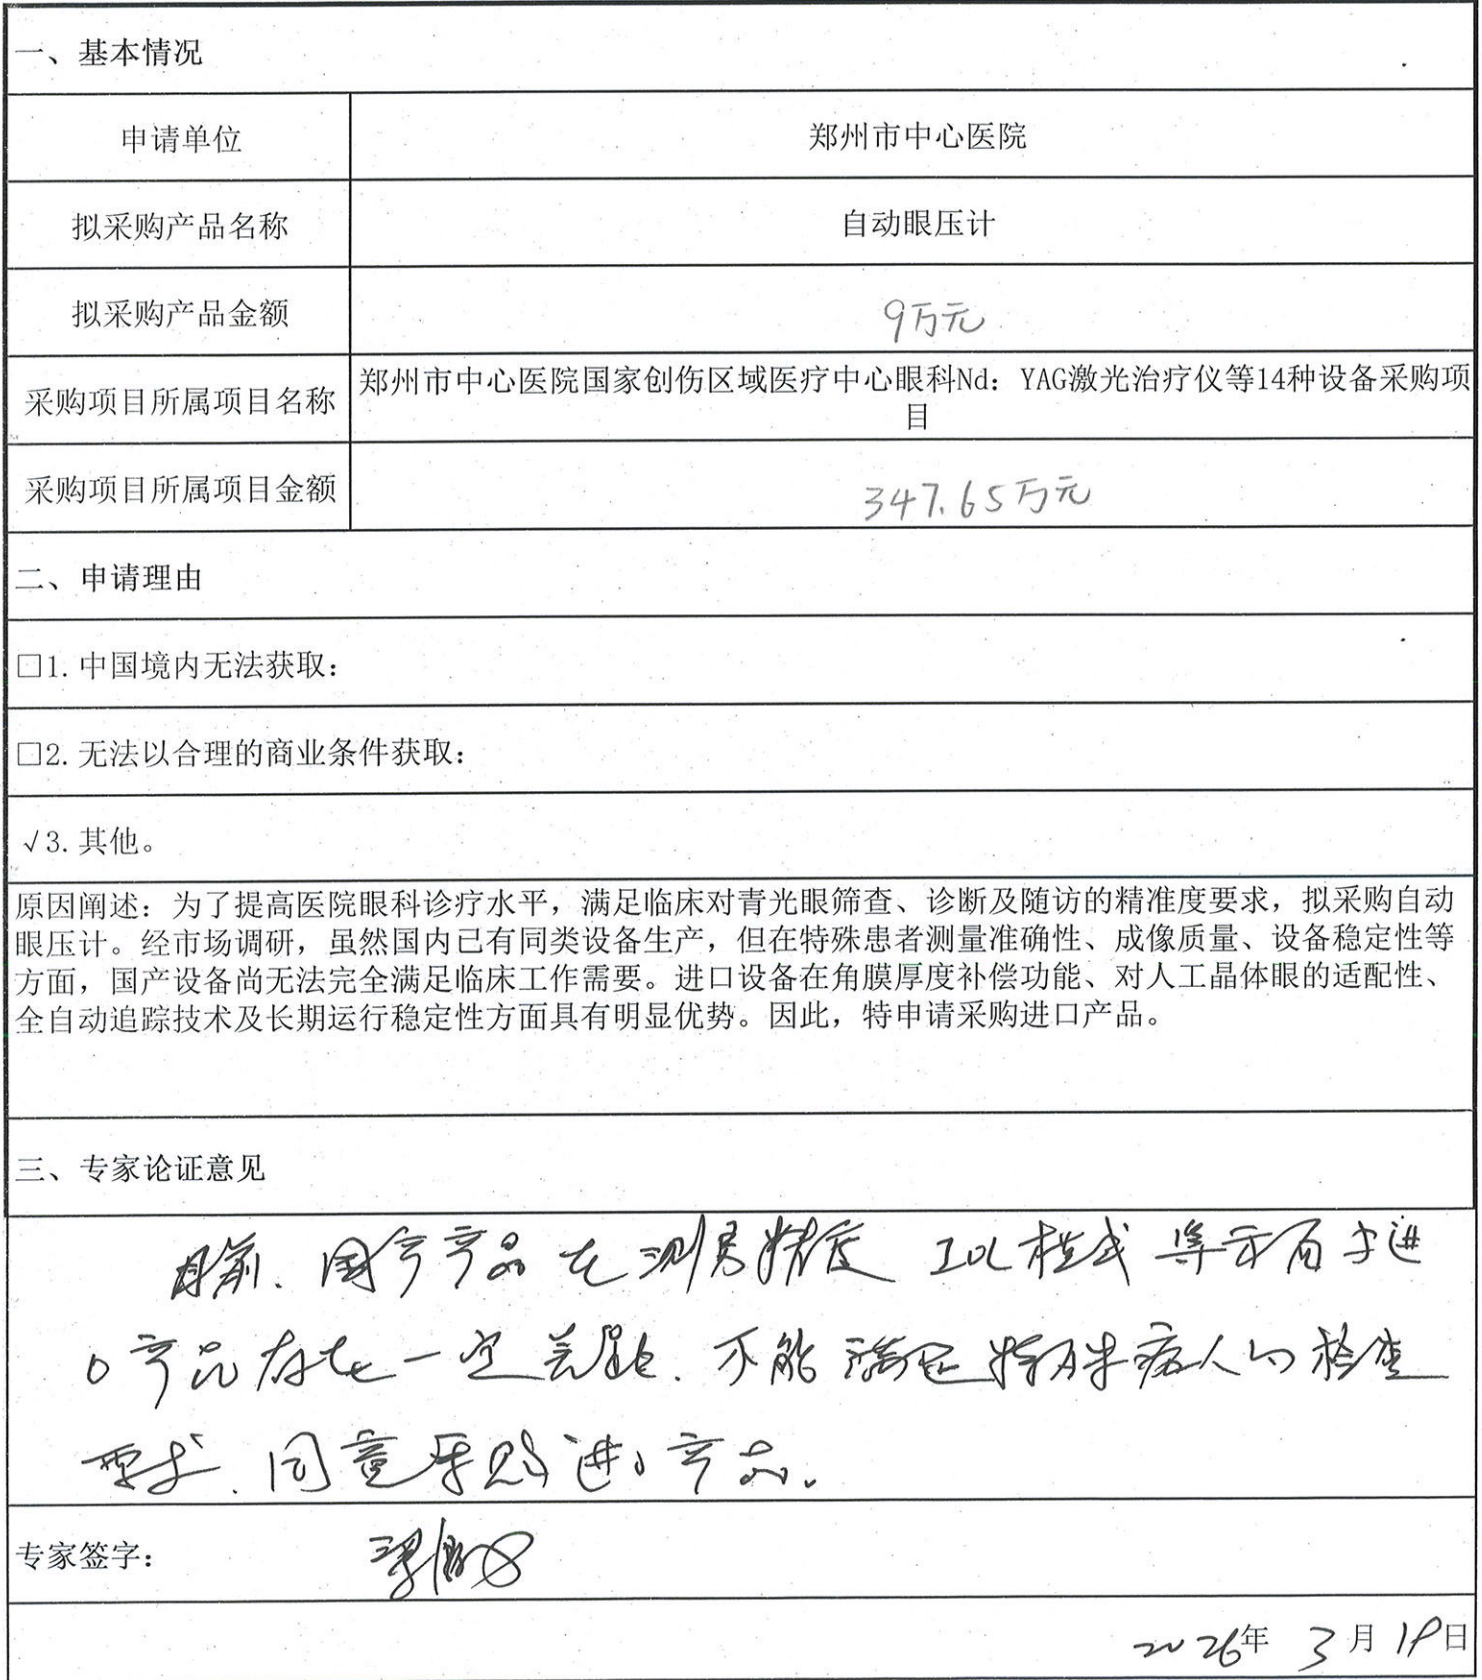 一、基本情况
申请单位
郑州市中心医院
拟采购产品名称
自动眼压计
拟采购产品金额
9万元
采购项目所属项目名称
郑州市中心医院国家创伤区域医疗中心眼科Nd：YAG激光治疗仪等14种设备采购项
目
采购项目所属项目金额
347.65万元
二、申请理由
□1.中国境内无法获取：
□2.无法以合理的商业条件获取：
√3.其他。
原因阐述：为了提高医院眼科诊疗水平，满足临床对青光眼筛查、诊断及随访的精准度要求，拟采购自动
眼压计。经市场调研，虽然国内已有同类设备生产，但在特殊患者测量准确性、成像质量、设备稳定性等
方面，国产设备尚无法完全满足临床工作需要。进口设备在角膜厚度补偿功能、对人工晶体眼的适配性、
全自动追踪技术及长期运行稳定性方面具有明显优势。因此，特申请采购进口产品。
三、专家论证意见
目前、国产产品在测量精度 IOL模式等方面与进
口产品存在一定差距.不能满足特殊病人的检查
要求.同意采购进口产品。
专家签字：
2026年 3月19日